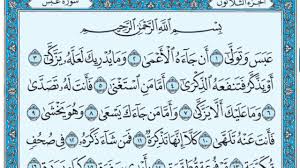 الجزء الثلاثون سورة عبس
بِسْمِ ٱللَّهِ ٱلرَّحْمَٰنِ ٱلرَّحِيمِ
عَبَسَ وَتَوَلَّىٰٓ ١ أَن جَآءَهُ ٱلْأَعْمَىٰ ٢ وَمَا يُدْرِيكَ لَعَلَّهُۥ يَزَّكَّىٰٓ ٣
أَوْ يَذَّكَّرُ فَتَنفَعَهُ ٱلذِّكْرَىٰٓ ٤ أَمَّا مَنِ ٱسْتَغْنَىٰ ٥ فَأَنتَ لَهُۥ تَصَدَّىٰ
٦ وَمَا عَلَيْكَ أَلَّا يَزَّكَّىٰ ٧ وَأَمَّا مَن جَآءَكَ يَسْعَىٰ ٨ وَهُوَ يَخْشَىٰ
٩ فَأَنتَ عَنْهُ تَلَهَّىٰ ١٠ كَلَّآ إِنَّهَا تَذْكِرَةٌ ١١ فَمَن شَآءَ ذَكَرَهُۥ ١٢ فِى صُحُفٍ